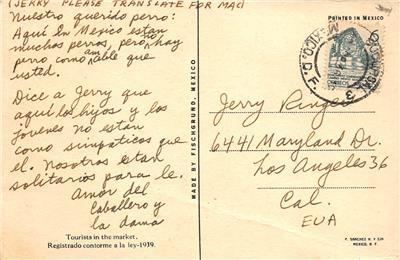 (JERRY PLEASE TRANSLATE FOR MAC)
Nuestro querido perro:
Aqui En Mejico estan
muchos perros, pero no hay
perro como amable que
usted.
Dice a Jerry que
aqui los hijos y los
jovenes no estan
como simpaticos que
el. Nosotros estan
solitarios para le.
Amor del
Caballero y
la dama
Tourists in the market.
Registrado conforme a la ley-1939.
MADE BY FISCHGRUND, MEXICO
PRINTED IN MEXICO
MEXICO, D. F.
Jerry Ringer
6441 Maryland Dr.
Los Angeles 36
Cal.
EUA
MEXICO, D. F.